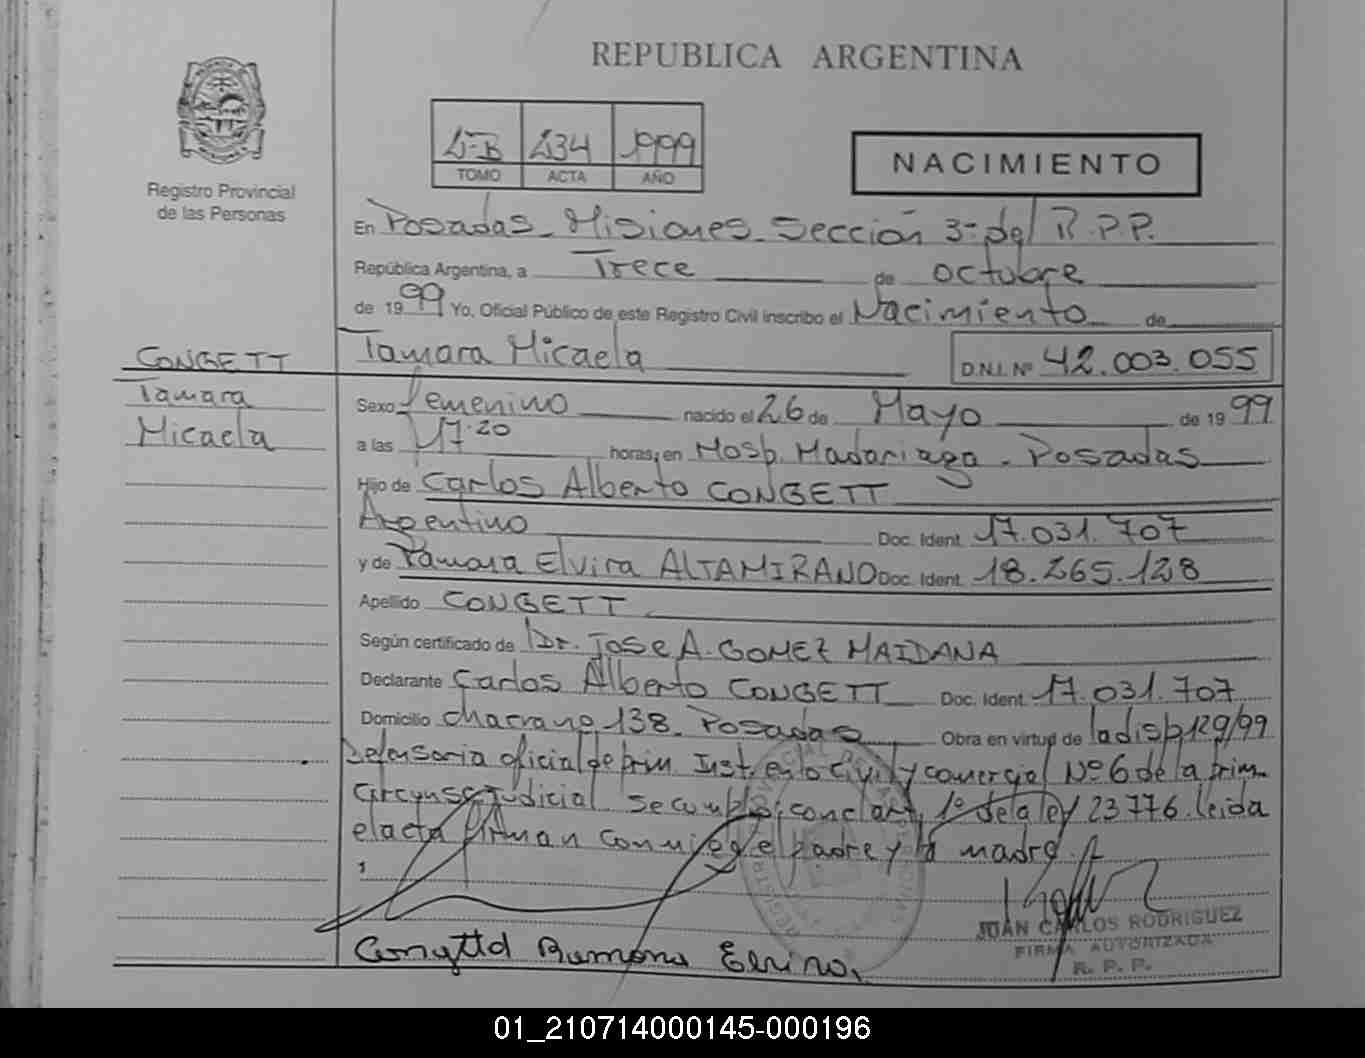 REPUBLICA ARGENTINA
Registro Provincial
de las Personas
2-B 234 1999
TOMO ACTA AÑO
NACIMIENTO
En Posadas - Misiones - Sección 3ª del R.P.P.
República Argentina, a Trece de octubre
de 1999 Yo, Oficial Público de este Registro Civil inscribo el Nacimiento de
CONGETT
Tamara
Micaela
Tamara Micaela D.N.I. Nº 42.003.055
Sexo femenino nacido el 26 de Mayo de 1999
a las 17.20 horas, en Hosp. Madariaga - Posadas
Hijo de Carlos Alberto CONGETT
Argentino Doc. Ident. 17.031.707
y de Elvira ALTAMIRANO Doc. Ident. 18.265.128
Apellido CONGETT
Según certificado de Dr. JOSE A. GOMEZ MAIDANA
Declarante Carlos Alberto CONGETT Doc. Ident. 17.031.707
Domicilio 138 - Posadas Obra en virtud de la disp 129/99
Defensoria oficial de prim. Inst. en lo Civil y comercial Nº 6 de la prim.
Circunsc. judicial. Se cumplió con el art. 1º de la ley 23776. Leida
el acta firman conmigo el padre y la madre.
JUAN CARLOS RODRIGUEZ
FIRMA AUTORIZADA
R. P. P.
01_210714000145-000196